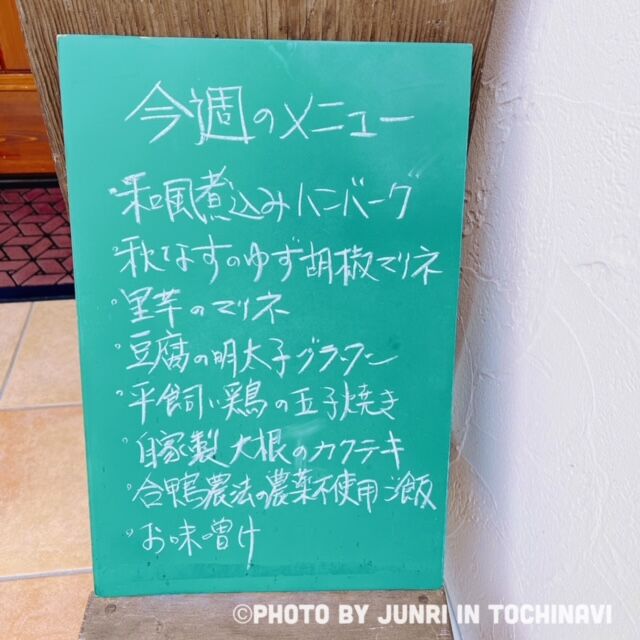 今週のメニュー
・和風煮込みハンバーグ
・秋なすのゆず胡椒マリネ
・里芋のマリネ
・豆腐の明太子グラタン
・平飼い鶏の玉子焼き
・自家製大根のカクテキ
・合鴨農法の農薬不使用ご飯
・お味噌汁
©PHOTO BY JUNRI IN TOCHINAVI